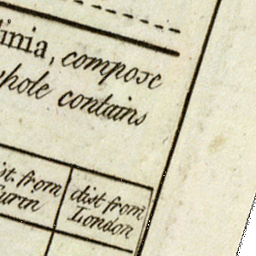 inia, compose
whole contains
ist. from dist from
Turin London